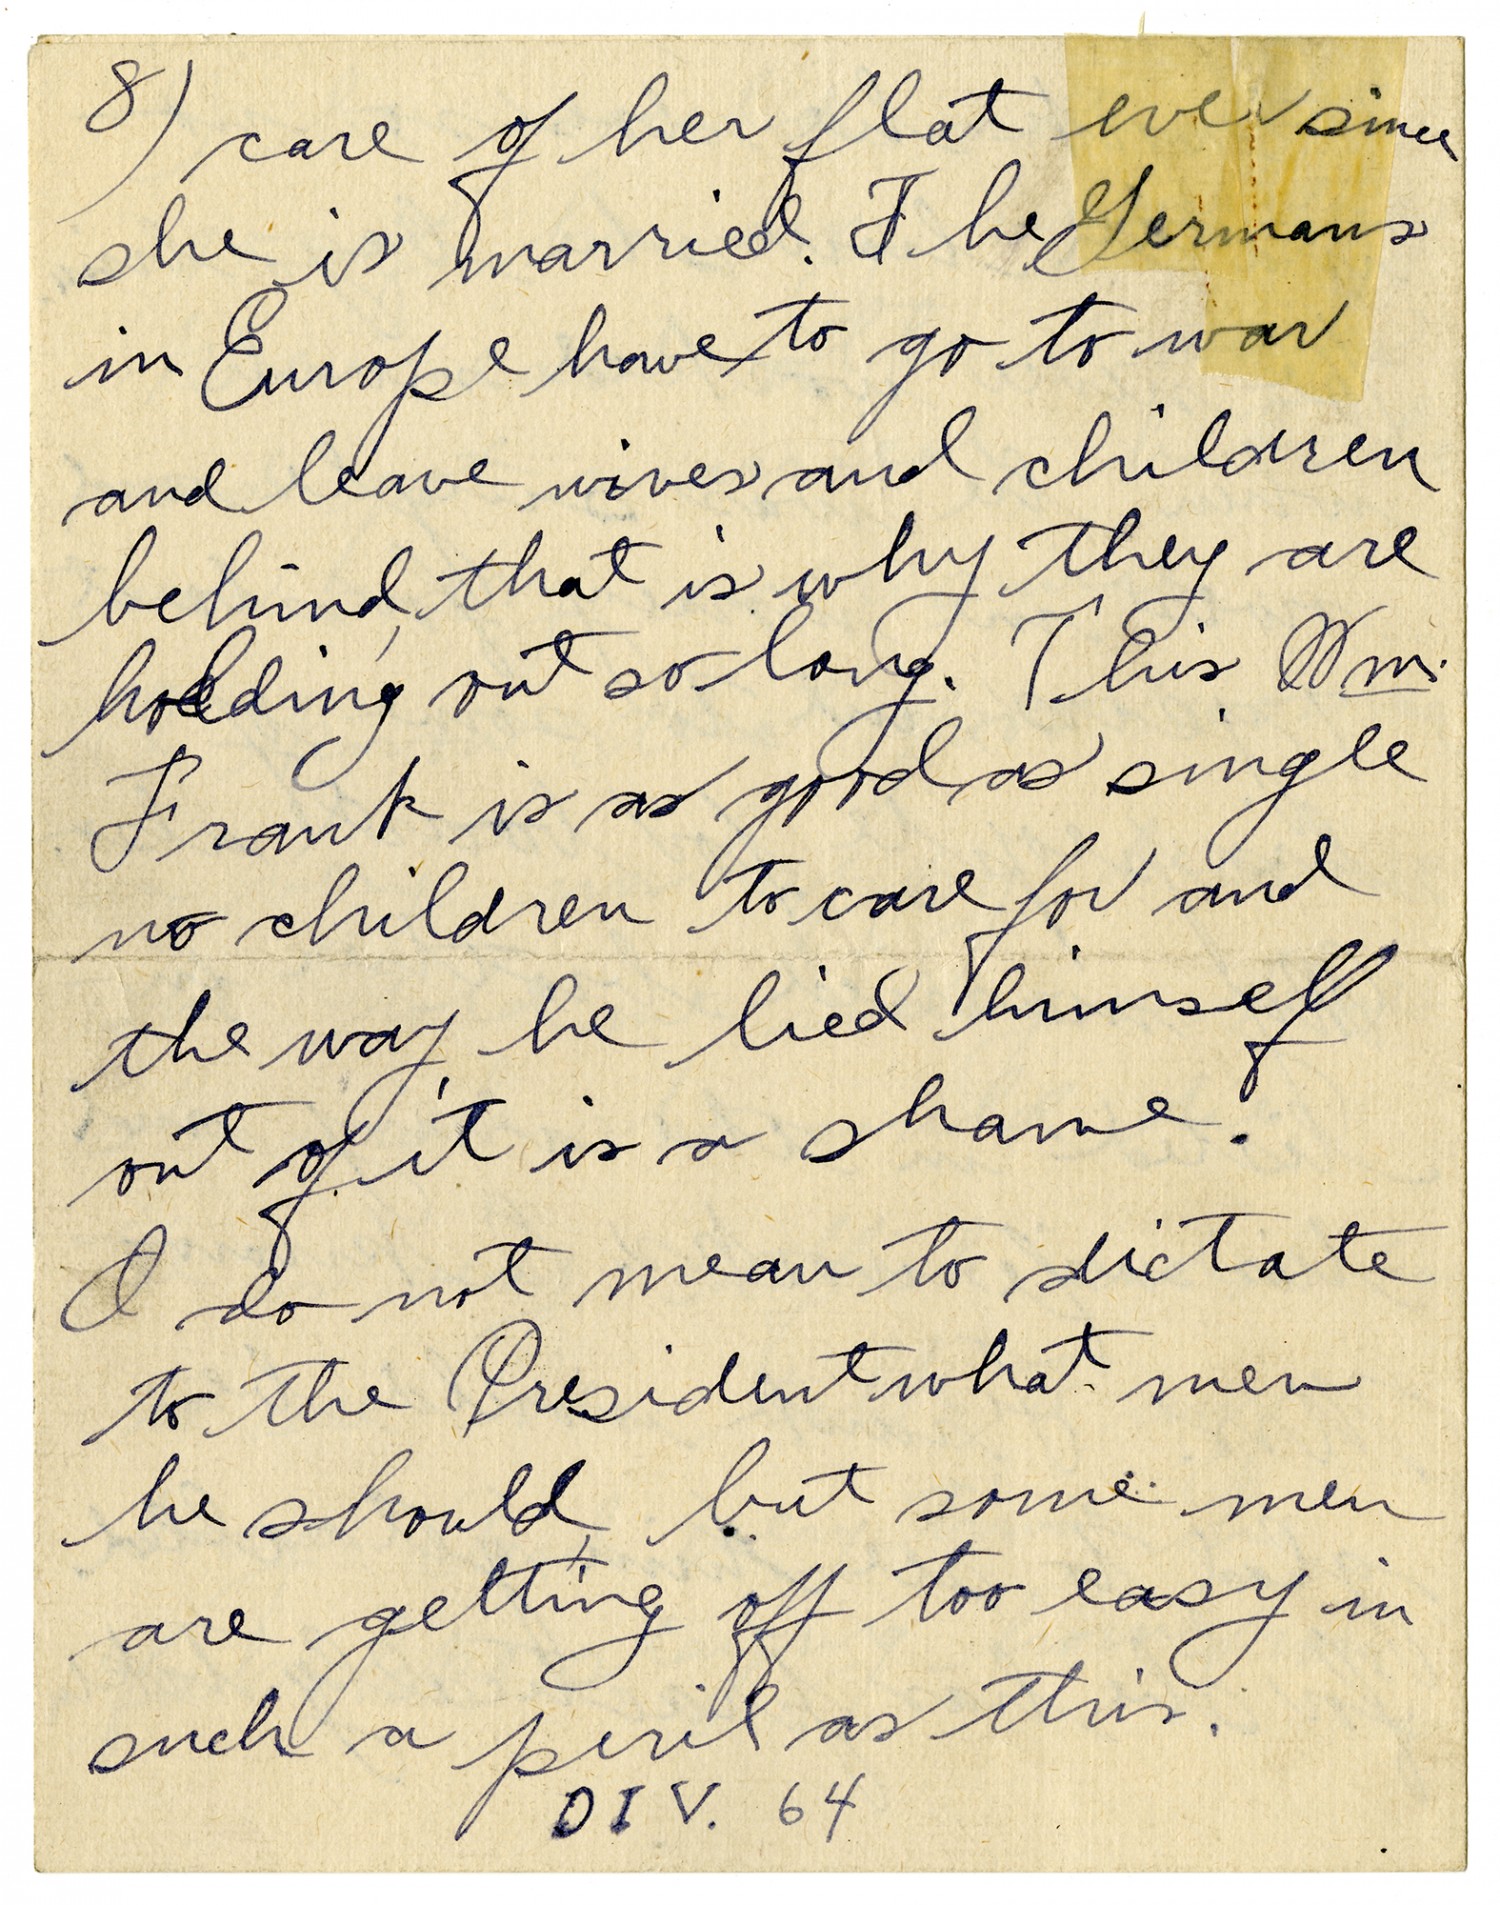 8) care of her flat ever since
she is married. The Germans
in Europe have to go to war
and leave wives and children
behind, that is why they are
holding out so long. This Wm.
Frank is as good as single
no children to care for and
the way, he lied himself
out of it is a shame.
I do not mean to dictate
to the President what men
he should, but some men
are getting off too easy in
such a peril as this.
DIV. 64